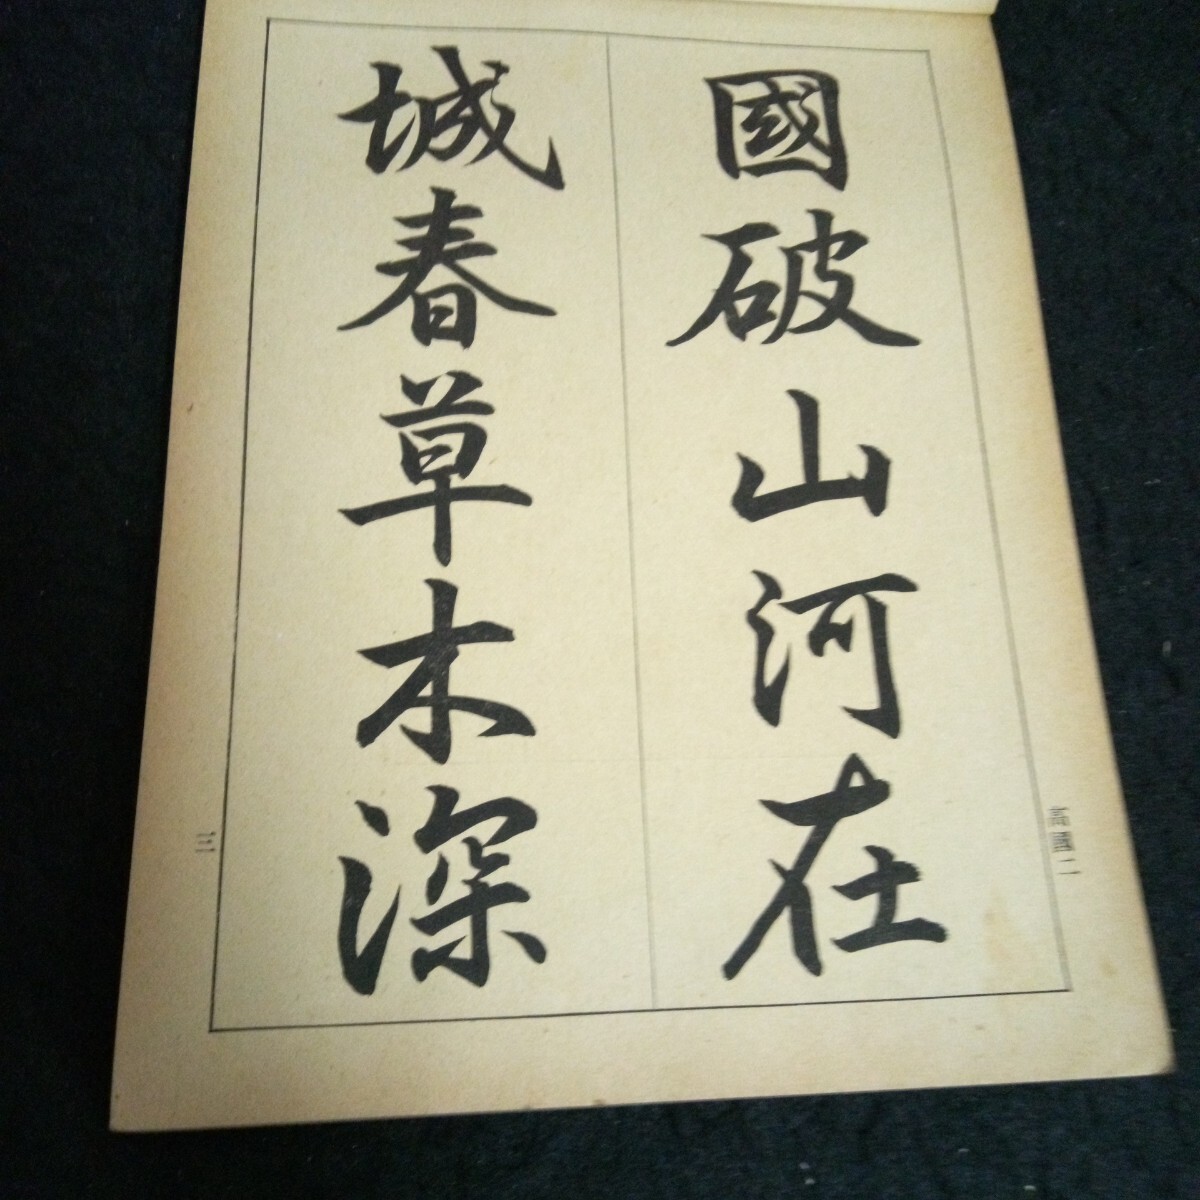 國破山河在
城春草木深
高國二
三